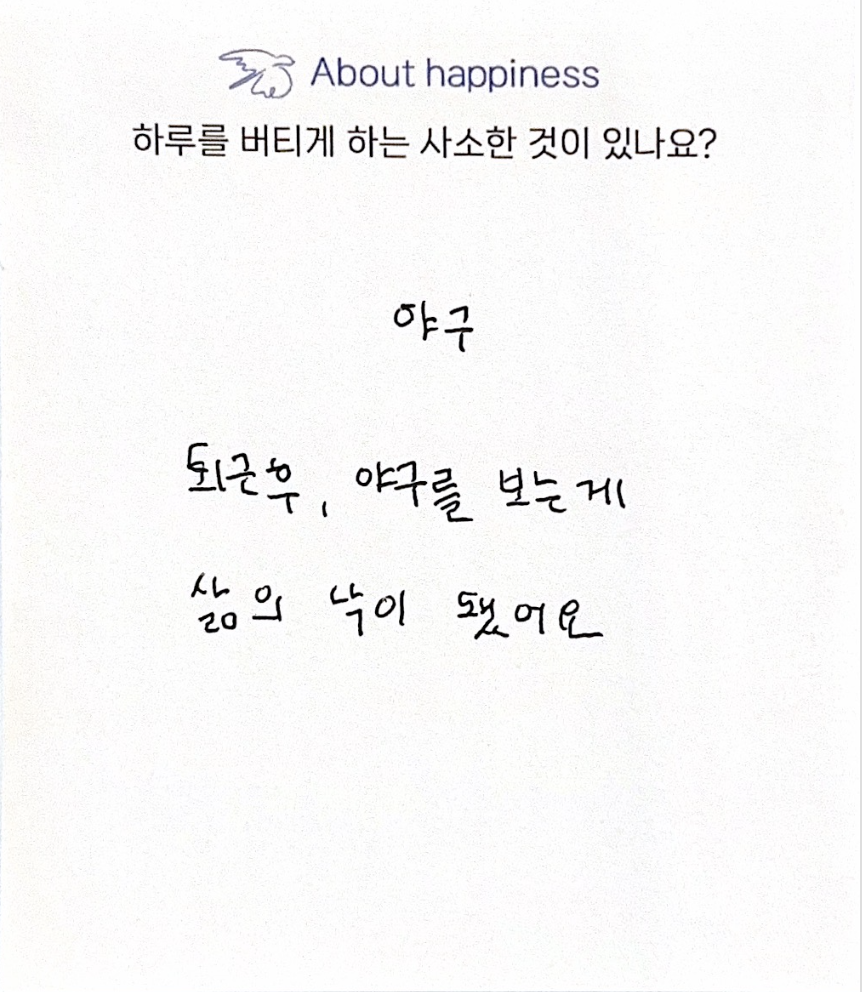 About happiness
하루를 버티게 하는 사소한 것이 있나요?
야구
퇴근후, 야구를 보는게
삶의 낙이 됐어요